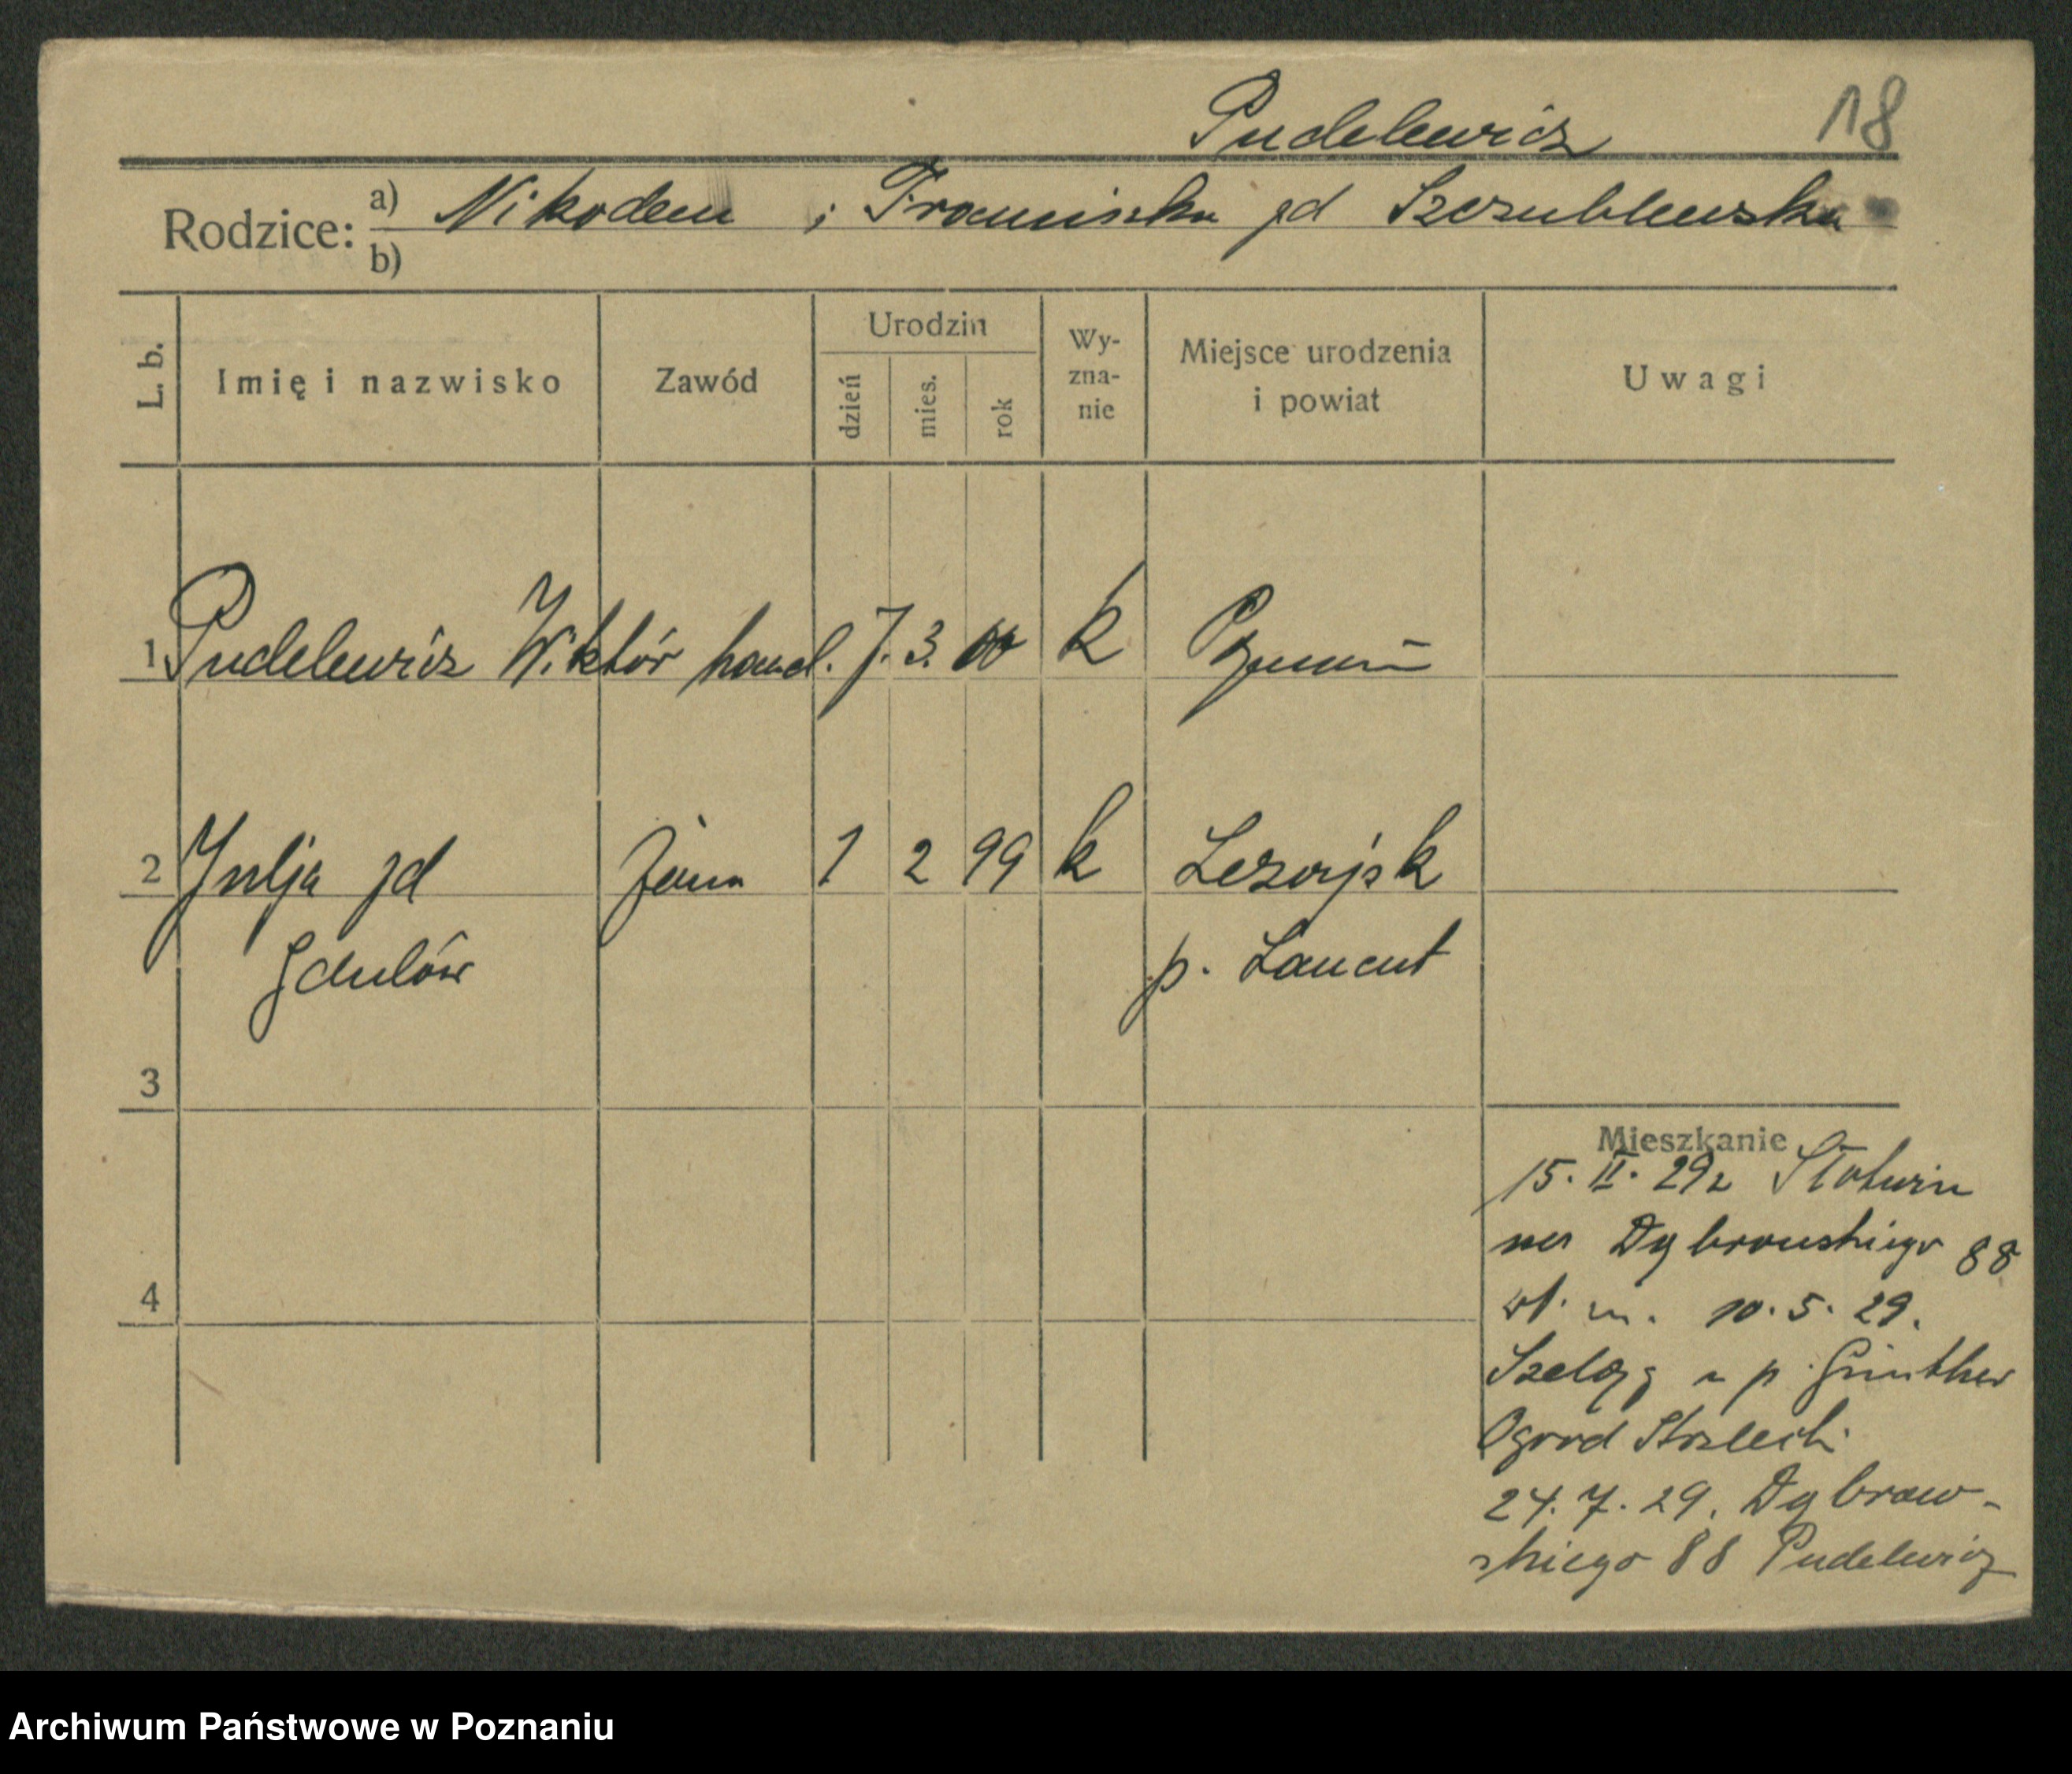 Pudelewicz 18
Rodzice: a) Nikodem i Franciszka zd Szczublewska
b)
L. b. Imię i nazwisko Zawód Urodzin dzień mies. rok Wy-zna-nie Miejsce urodzenia i powiat Uwagi
1 Pudelewicz Wiktór hand. 7. 3. 00 k Poznań
2 Julja zd żona 1 2 99 k Leżajsk
Gdulów p. Lancut
3
Mieszkanie
15. II. 29r
Dąbrowskiego 88
4
10. 5. 29.
Szeląg u p. Günther
Ogród Strzelecki
24. 7. 29. Dąbrow-
skiego 88 Pudelewicz
Archiwum Państwowe w Poznaniu